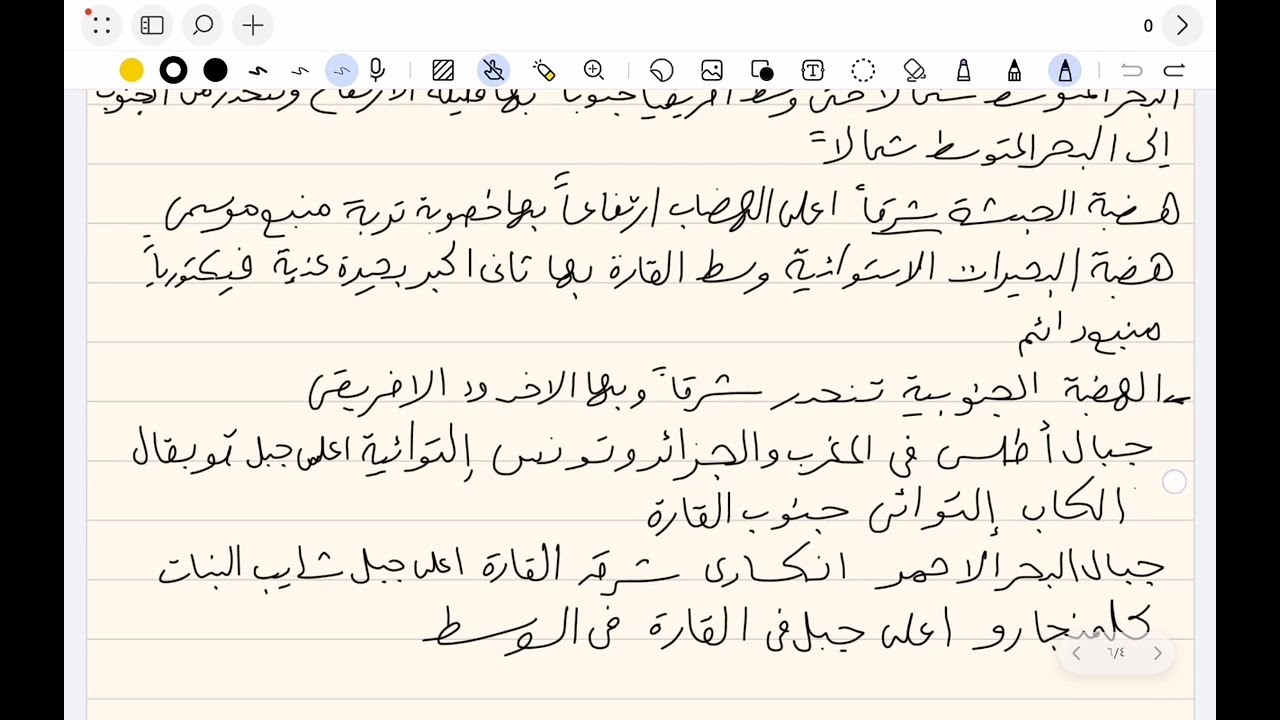 0
البحر المتوسط شمالا حتى وسط افريقيا جنوباً بها قليلة الارتفاع وتنحدر من الجنوب
إلى البحر المتوسط شمالا =
هضبة الحبشة شرقاً اعلى الهضاب ارتفاعاً بها خصوبة تربة منبع موسمى
هضبة البحيرات الاستوائية وسط القارة بها ثانى اكبر بحيرة عذبة فيكتورياً
منبع دائم
- الهضبة الجنوبية تنحدر شرقاً وبها الاخدود الافريقى
جبال أطلس فى المغرب والجزائر وتونس إلتوائية اعلى جبل توبقال
الكاب إلتوائى جنوب القارة
جبال البحر الاحمر انكسارى شرق القارة اعلى جبل شايب البنات
كلمنجارو اعلى جبل فى القارة فى الوسط
٦/٤